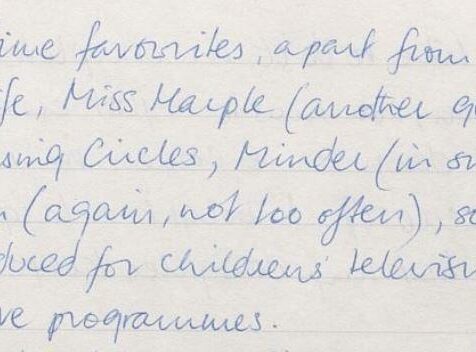 ime favourites, apart from
fe, Miss Marple (another g
sing Circles, Minder (in s
n (again, not too often), s
duced for childrens' televis
ve programmes.